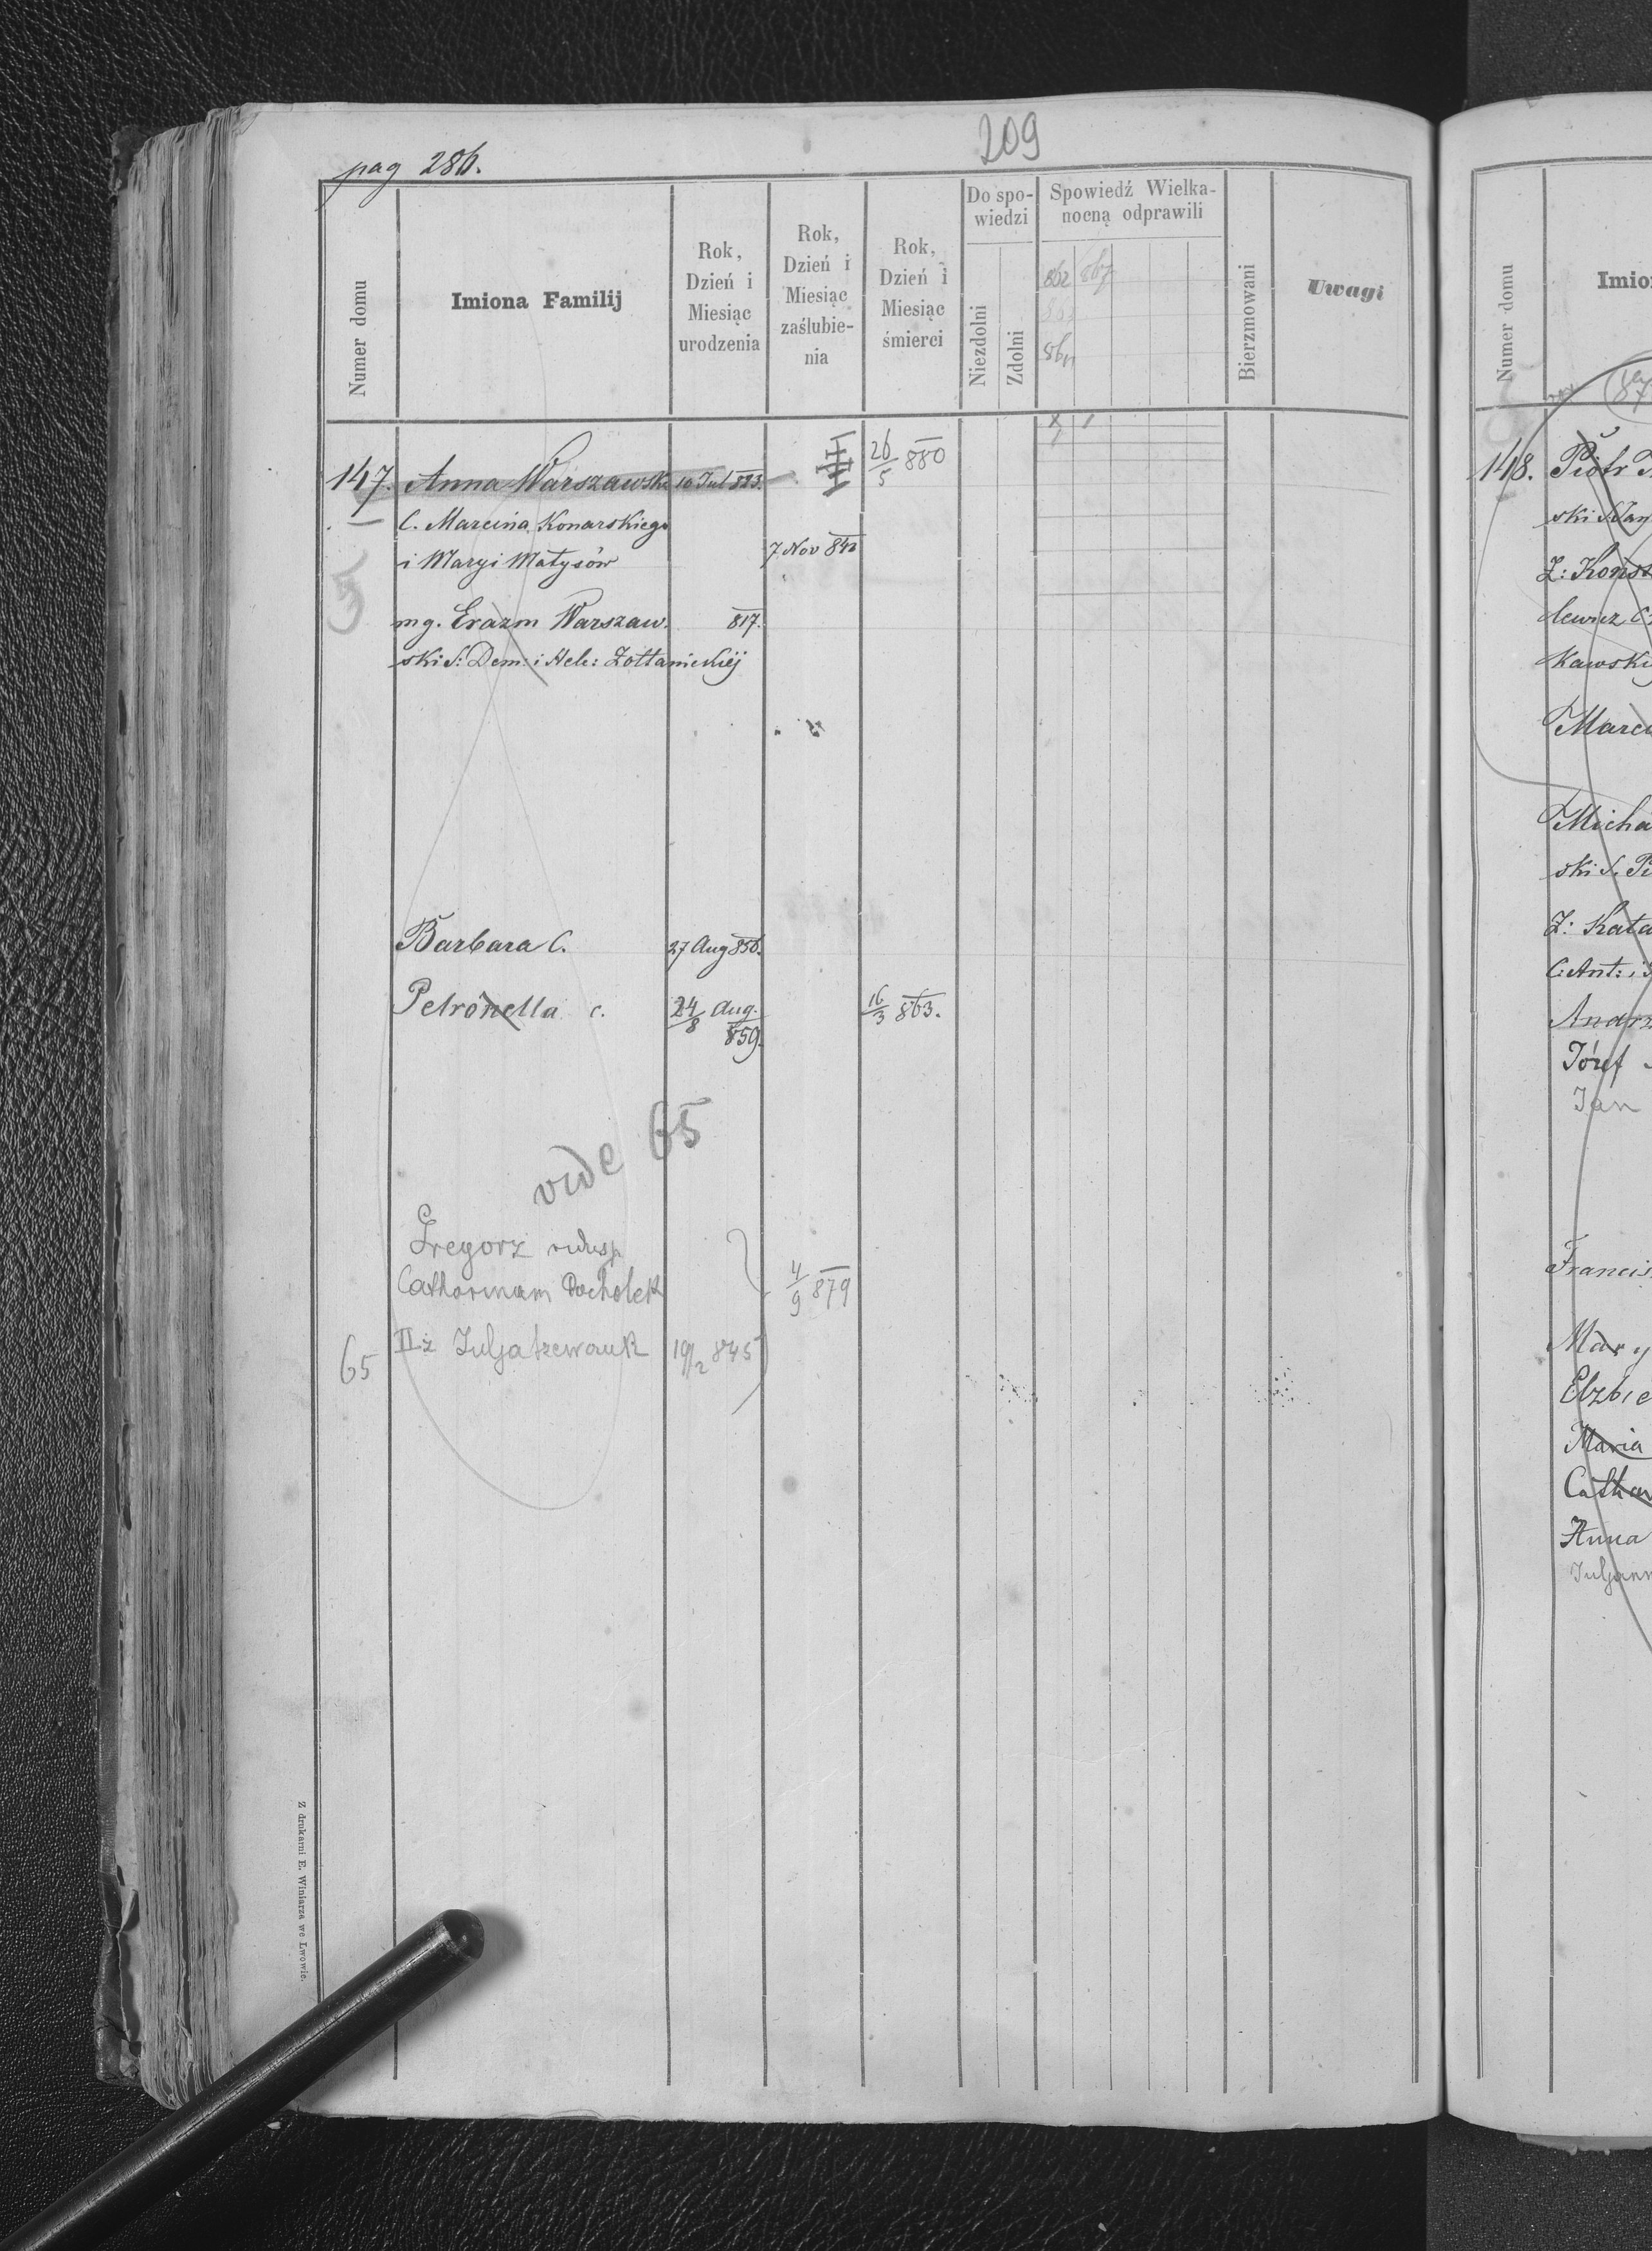 209
pag 286.
Numer domu
Imiona Familij
Rok,
Dzień i
Miesiąc
urodzenia
Rok,
Dzień i
Miesiąc
zaślubie-
nia
Rok,
Dzień i
Miesiąc
śmierci
Do spo-
wiedzi
Niezdolni
Zdolni
Spowiedź Wielka-
nocną odprawili
862 867
Bierzmowani
Uwagi
147. Anna Warszawska 10 Jul 823. 26/5 880
C. Marcina Konarskiego
i Maryi Matysów 7 Nov 842
mg. Erazm Warszaw. 817.
ski S: Dem: i Hele: Zottanickiéj
Barbara C. 27 Aug 856.
Petronella c. 24/8 Aug. 859. 16/3 863.
vide 65
Gregorz
Catharinam Pocholek 4/9 879
65 II ż 19/2 845
Z drukarni E. Winiarza we Lwowie.
Numer domu
Imio
148. Piotr
ski S. Jan
Ż: Konst
lewicz C:
kawski
Marci
Micha
ski S. Pi
Ż: Kata
C: Ant: i
Andrz
Józef
Jan
Francis
Mary
Elzbie
Maria
Cathar
Anna